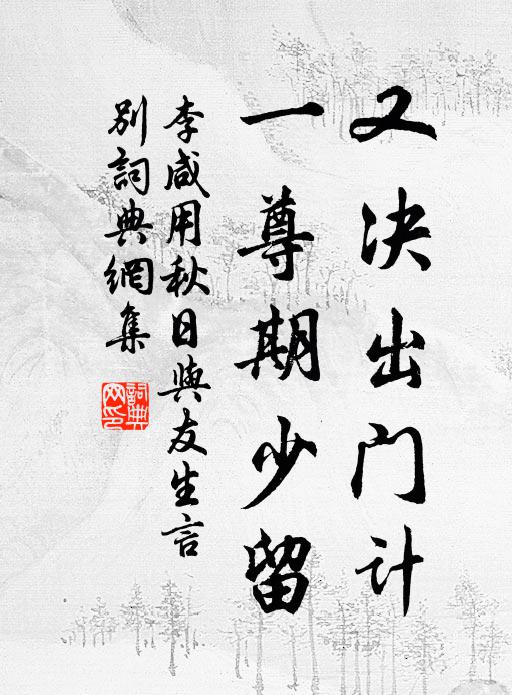 又决出门计
一尊期少留
李咸用秋日與友生言
别詞典網集
詞典网印